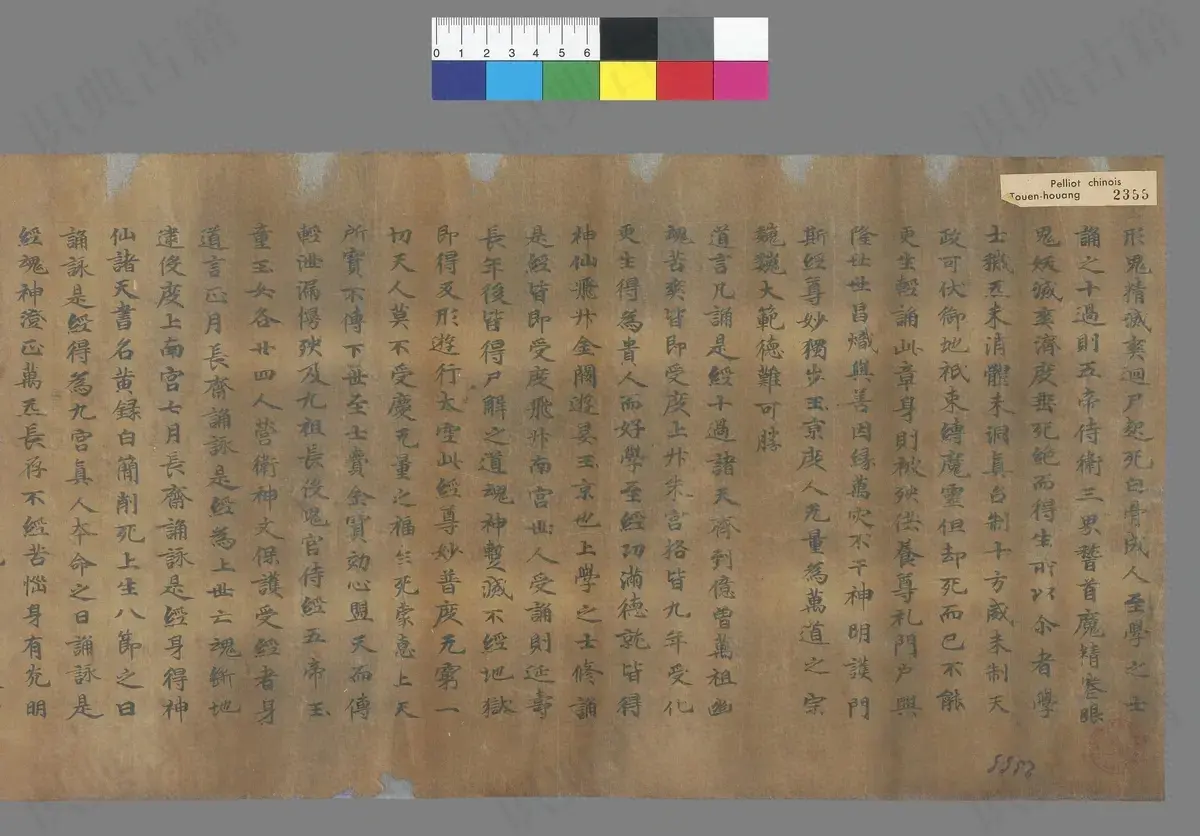 Pelliot chinois
Touen-houang 2355
0 1 2 3 4 5 6
形鬼精滅爽迴尸起死白骨成人至學之士
誦之十過則五帝侍衛三界稽首魔精喪眼
鬼妖滅爽濟度垂死絕而得生所以尒者學
士穢炁未消體未洞真召制十方威未制天
政可伏御地祇束縛魔靈但却死而已不能
更生輕誦此章身則被殃供養尊礼門户興
隆世世昌熾與善因緣萬灾不干神明護門
斯經尊妙獨步玉京度人无量為萬道之宗
巍巍大範德難可勝
道言凡誦是經十過諸天齊到億曾萬祖幽
魂苦爽皆即受度上升朱宮格皆九年受化
更生得為貴人而好學至經功滿德就皆得
神仙飛升金闕遊晏玉京也上學之士修誦
是經皆即受度飛升南宮世人受誦則延壽
長年後皆得尸解之道魂神蹔滅不經地獄
即得反形遊行太空此經尊妙普度无窮一
切天人莫不受慶无量之福生死蒙惠上天
所寶不傳下世至士賷金寶効心盟天而傳
輕泄漏慢殃及九祖長役鬼官侍經五帝玉
童玉女各廿四人營衛神文保護受經者身
道言正月長齋誦詠是經為上世亡魂斷地
逮役度上南宮七月長齋誦詠是經身得神
仙諸天書名黃録白簡削死上生八節之日
誦詠是經得為九宮真人本命之日誦詠是
經魂神澄正萬炁長存不經苦惱身有光明